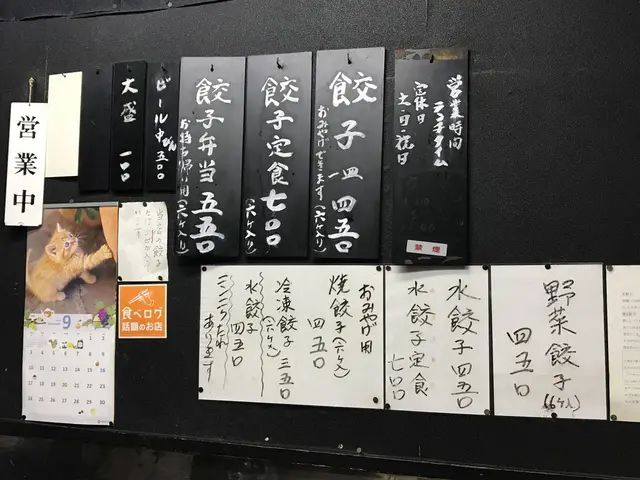 営業時間
ランチタイム
定休日
土・日・祝日
禁煙
餃子 一皿 四五〇
おみやげできます(六ケ入り)
餃子定食 七〇〇
(六ケ入り)
餃子弁当 五五〇
お持ち帰り用(六ケ入り)
ビール中びん 五〇〇
大盛 一〇〇
営業中
食べログ
話題のお店
9
野菜餃子(6ケ入)
四五〇
水餃子 四五〇
水餃子定食
七〇〇
おみやげ用
焼餃子(六ケ入)
四五〇
冷凍餃子 三五〇
(六ケ入)
水餃子
四五〇
にんにくだれ
あります